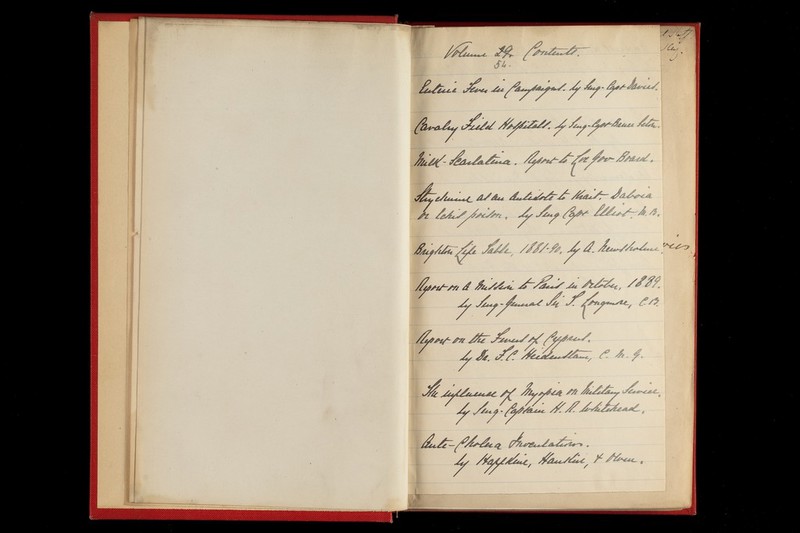 Volume 29. Contents.
54.
Enteric Fever in Campaigns. by Surg-Capt Davies.
Cavalry Field Hospitals. by Surg-Capt Bruce Seton.
Milk-Scarlatina. Report to Loc Gov Board.
Strychnine as an Antidote to Krait. Daboia
or Echis poison. by Surg Capt Elliot. M.B.
Brighton Life Table, 1881-90. by A. Newsholme.
Report on a Mission to Paris in October, 1889.
by Surg-General Sir T. Longmore, C.B.
Report on the Fevers of Cyprus.
by Dr. F.C. Heidenstam, C.M.G.
The influence of Myopia on Military Service.
by Surg-Captain H. R. Whitehead.
Anti-Cholera Inoculations.
by Haffkine, Hankin, & Owen.